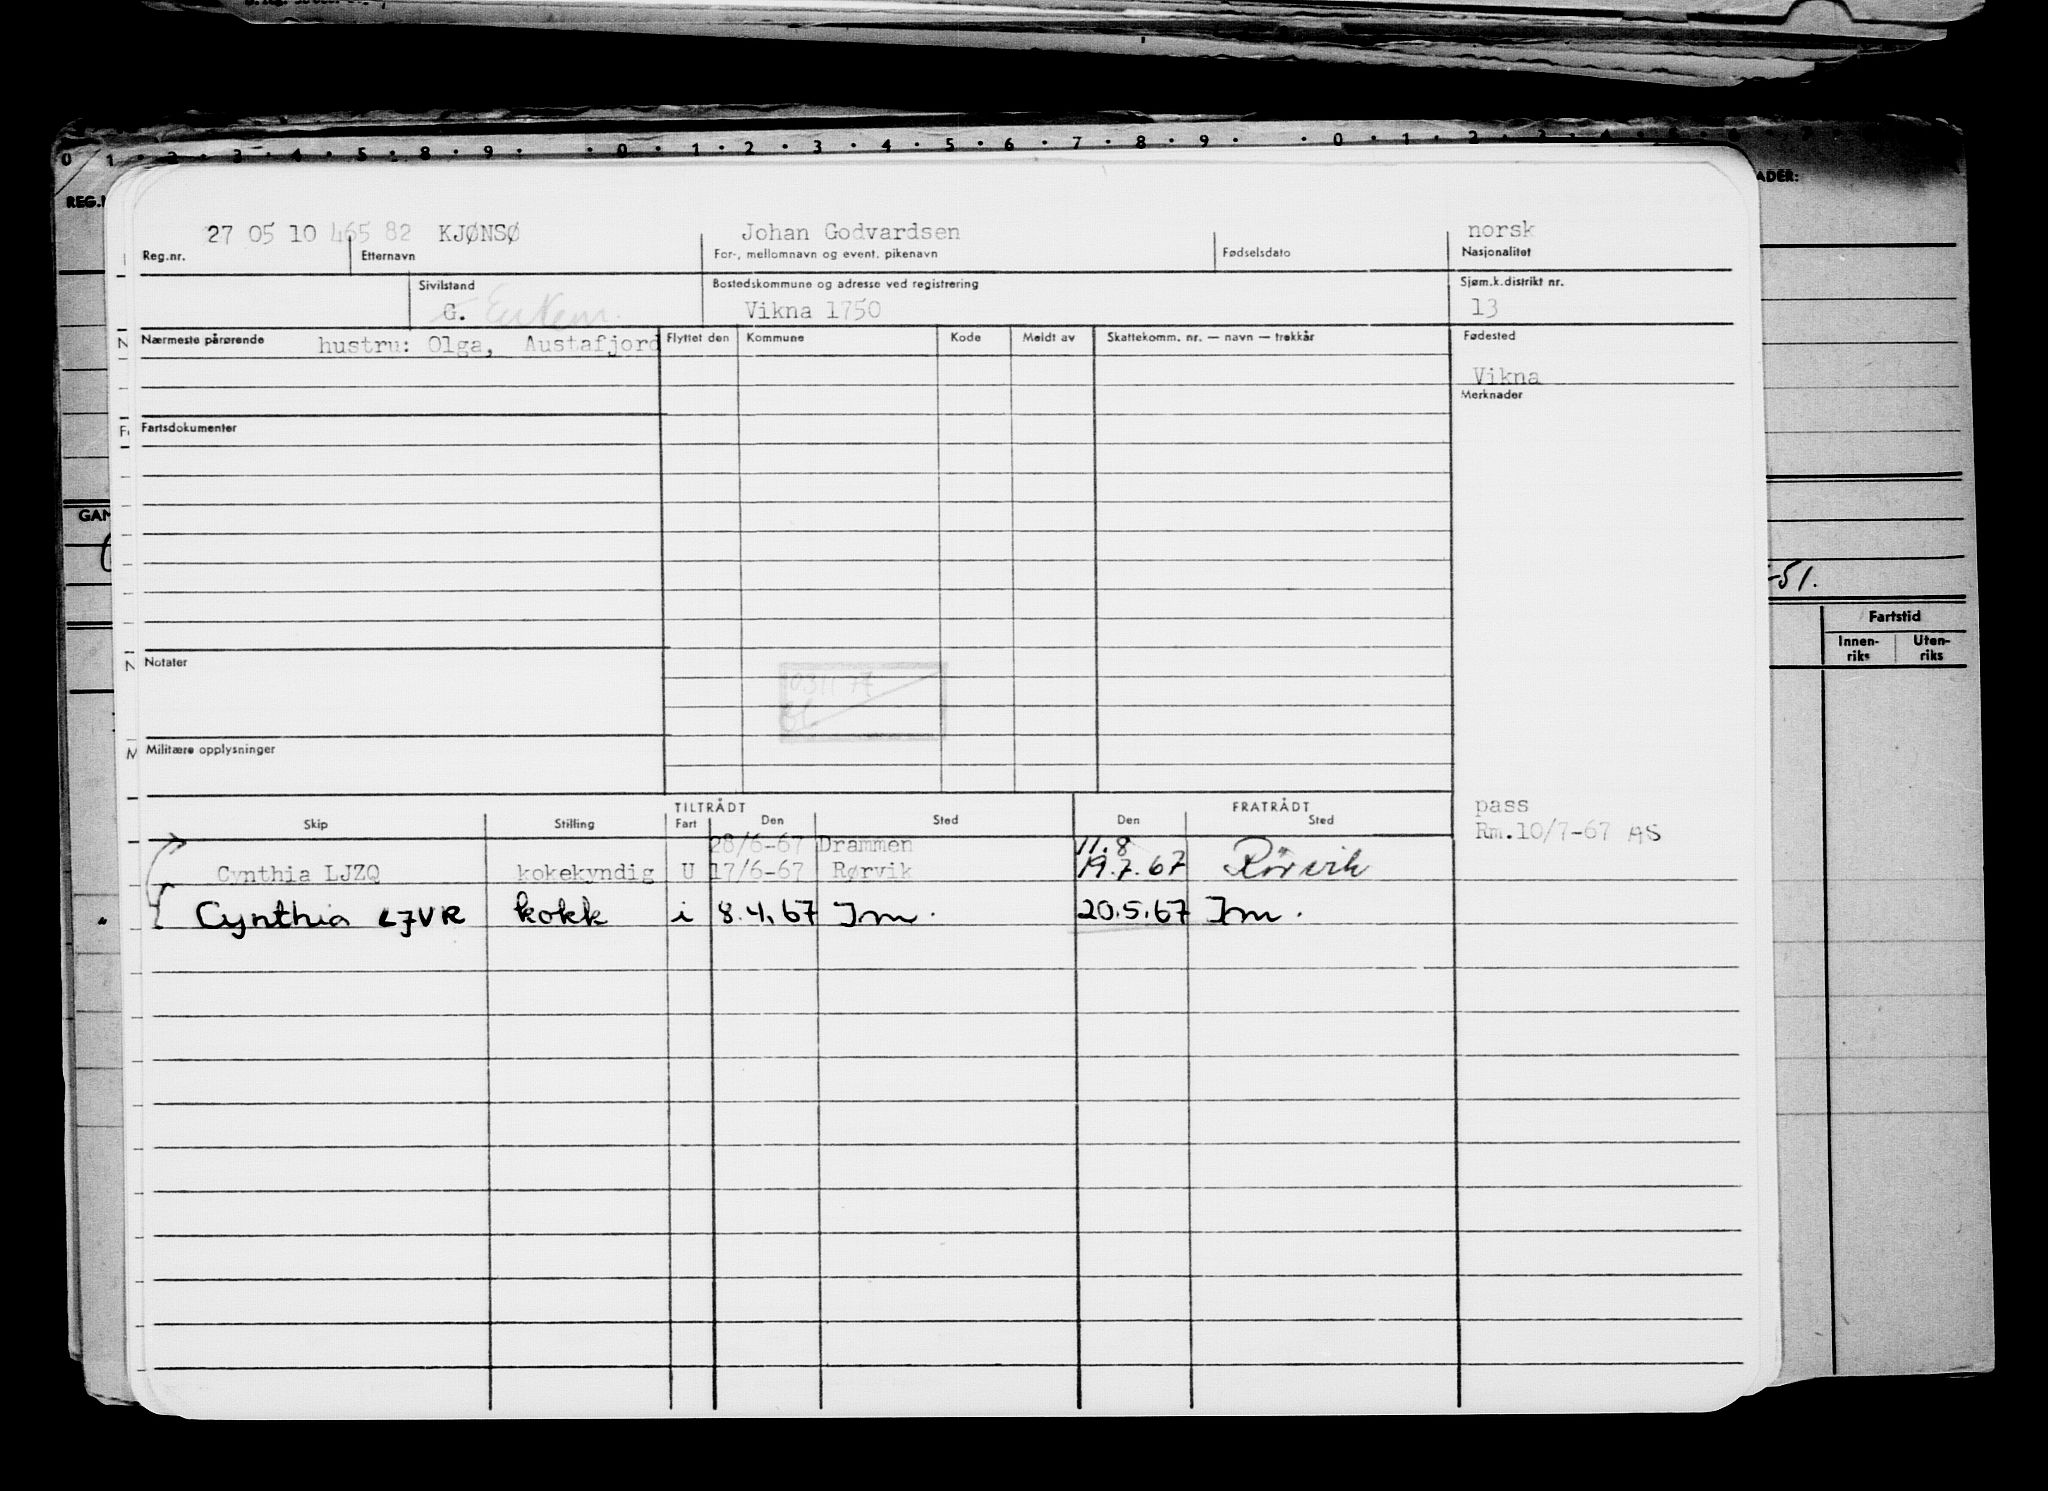 0 1 2 3 4 5 8 9 0 1 2 3 4 5 6 7 8 9 0 1 2 3 4 5 6
ADER:
REG.
27 05 10 465 82 KJØNSØ Johan Godvardsen norsk
Reg.nr. Etternavn For-, mellomnavn og event. pikenavn Fødselsdato Nasjonalitet
Sivilstand Bostedskommune og adresse ved registrering Sjøm.k.distrikt nr.
G. Enkem. Vikna 1750 13
Nærmeste pårørende hustru: Olga, Austafjord Flyttet den Kommune Kode Meldt av Skattekomm. nr. — navn — trekkår Fødested
Vikna
Merknader
Fartsdokumenter
GAM
-51.
Fartstid
Innen-riks Uten-riks
Notater
031177
Militære opplysninger
TILTRÅDT FRATRÅDT pass
Skip Stilling Fart Den Sted Den Sted Rm.10/7-67 AS
28/6-67 Drammen 11.8
Cynthia LJZQ kokekyndig U 17/6-67 Rørvik 19.7.67 Rørvik
Cynthia LJVR kokk i 8.4.67 Im. 20.5.67 Im.